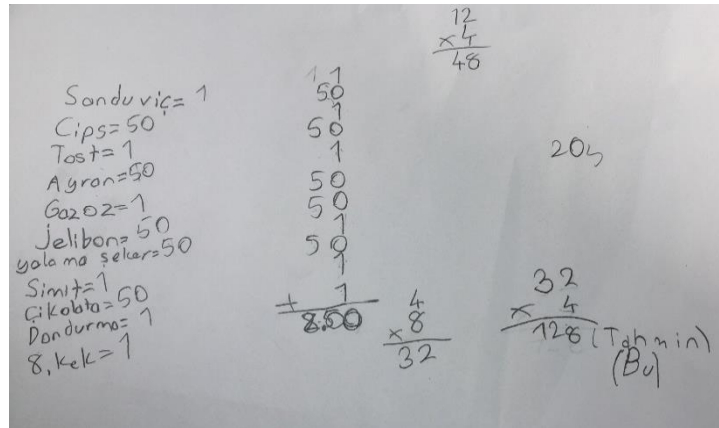 12
x4
48
Sanduviç= 1
Cips= 50
Tost= 1
Ayran=50
Gazoz= 1
Jelibon= 50
yalama şeker=50
Simit= 1
Çikolata= 50
Dondurma= 1
8, kek= 1
1 1
50
1
50
1
50
50
1
50
1
+ 1
8.50
4
x 8
32
20
32
x 4
128 (Tahmin)
(Bu)